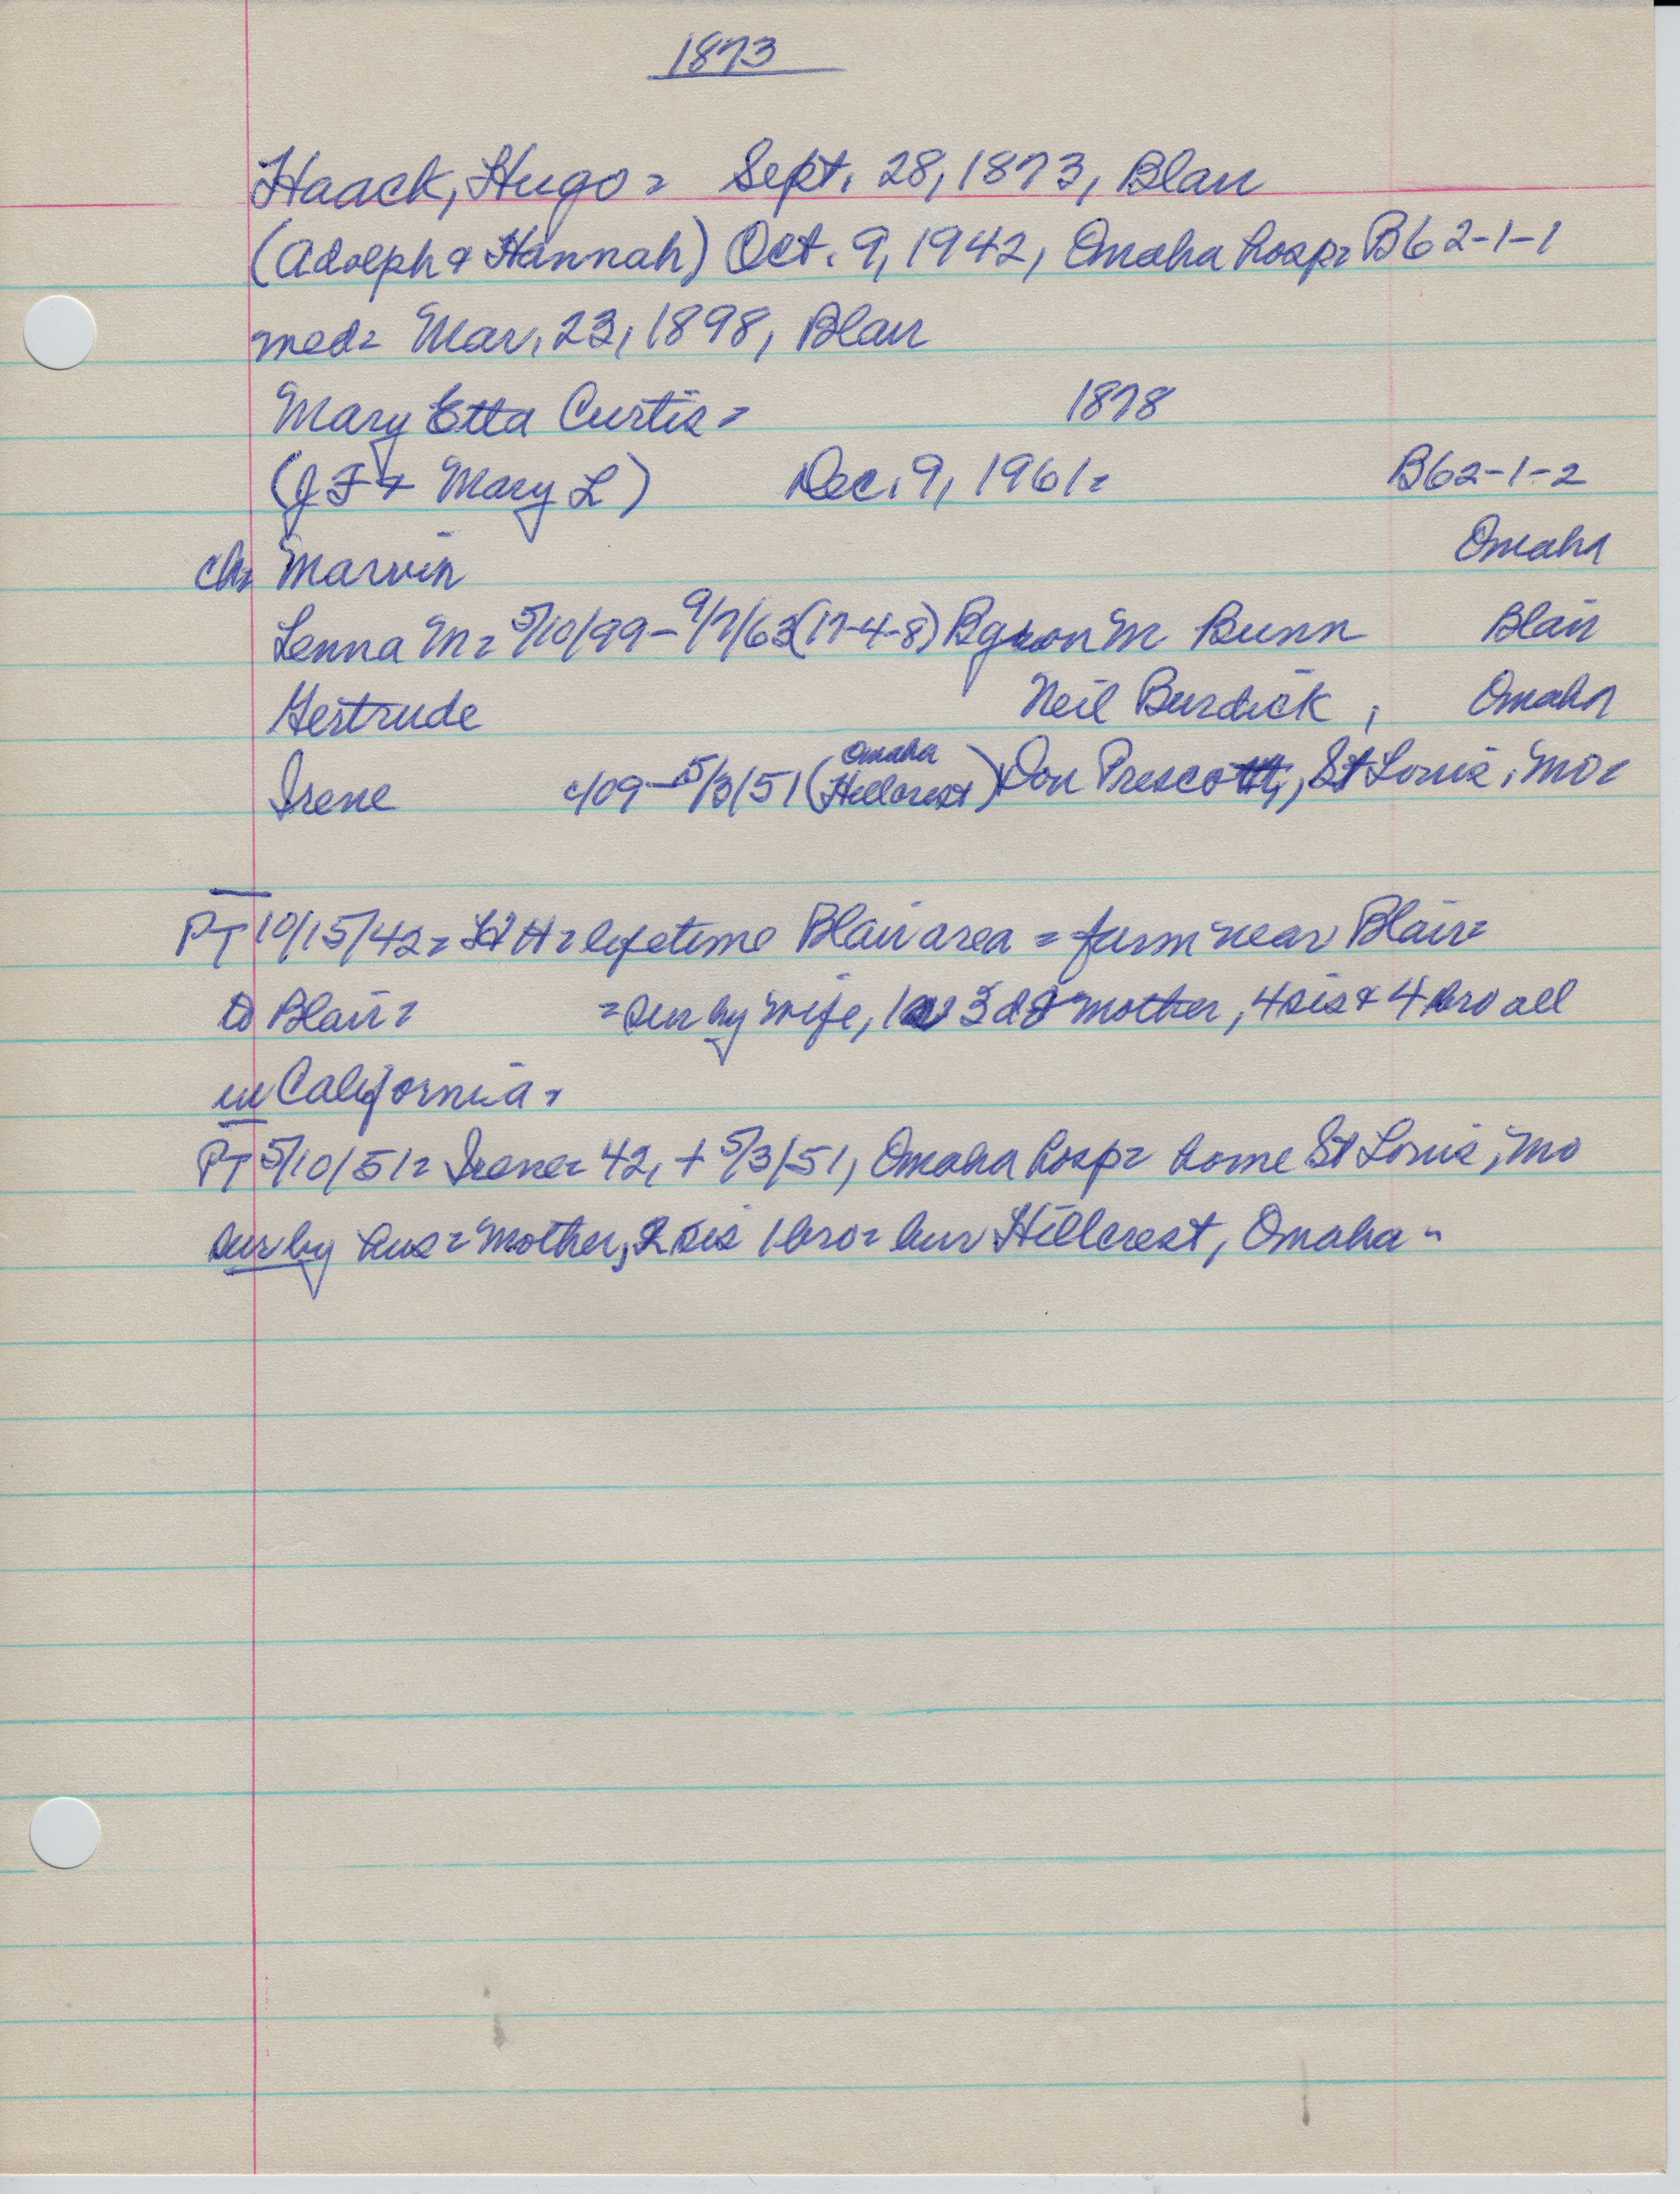 1873
Haack, Hugo = Sept. 28, 1873, Blair
(Adolph & Hannah) Oct. 9, 1942, Omaha hosp = B62-1-1
med = Mar. 23, 1898, Blair
Mary Etta Curtis = 1878
(J F & Mary L) Dec. 9, 1961 = B62-1-2
ch = Marvin Omaha
Lenna M = 5/10/99 - 9/7/63 (17-4-8) Byron M Bunn Blair
Gertrude Neil Burdick, Omaha
Irene c/09 - 5/3/51 (Omaha Hillcrest) Don Prescott, St Louis, Mo =
PT 10/15/42 = H H = lifetime Blair area = farm near Blair =
to Blair = = sur by wife, 1 s 3 d & mother, 4 sis & 4 bro all
in California =
PT 5/10/51 = Irene = 42, + 5/3/51, Omaha hosp = home St Louis, Mo
sur by hus = Mother, 2 sis 1 bro = bur Hillcrest, Omaha =